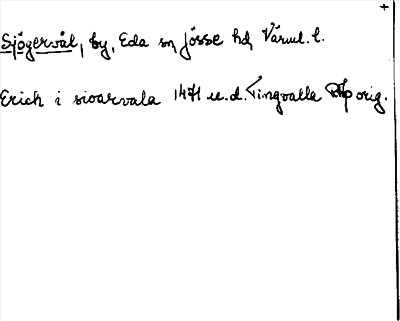 +
Sjögervål, by, Eda sn, Jösse hd, Värml. l.
Erich i sioarvala 1471 u.d. Tingvalla RAp orig.